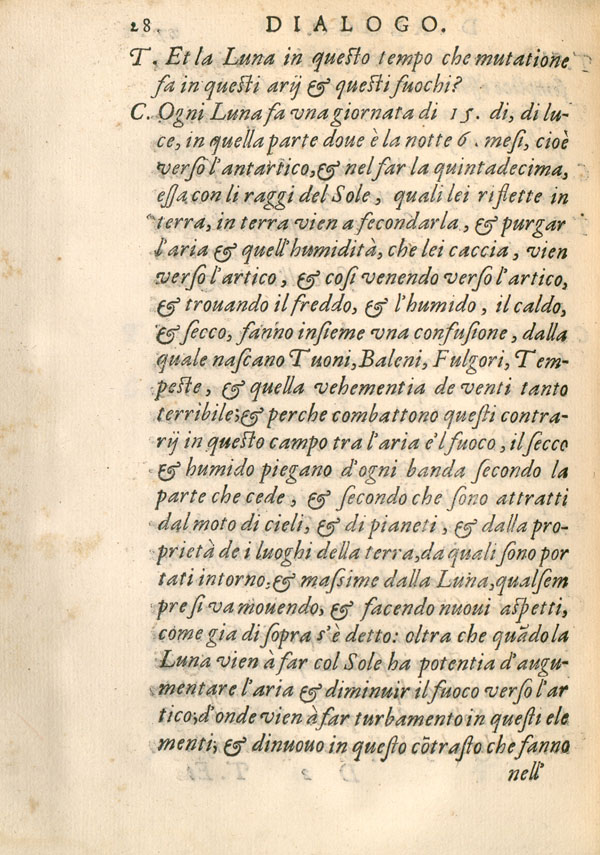 28. DIALOGO.
T. Et la Luna in questo tempo che mutatione
fa in questi arij & questi fuochi?
C. Ogni Luna fa vna giornata di 15. di, di lu-
ce, in quella parte doue è la notte 6. mesi, cioè
verso l'antartico, & nel far la quintadecima,
essa con li raggi del Sole, quali lei riflette in
terra, in terra vien a fecondarla, & purgar
l'aria & quell'humidità, che lei caccia, vien
verso l'artico, & cosi venendo verso l'artico,
& trouando il freddo, & l'humido, il caldo,
& secco, fanno insieme vna confusione, dalla
quale nascano Tuoni, Baleni, Fulgori, Tem-
peste, & quella vehementia de venti tanto
terribile; & perche combattono questi contra-
rij in questo campo tra l'aria e'l fuoco, il secco
& humido piegano d'ogni banda secondo la
parte che cede, & secondo che sono attratti
dal moto di cieli, & di pianeti, & dalla pro-
prietà de i luoghi della terra, da quali sono por
tati intorno: & massime dalla Luna, qual sem
pre si va mouendo, & facendo nuoui aspetti,
come gia di sopra s'è detto: oltra che quãdo la
Luna vien à far col Sole ha potentia d'augu-
mentare l'aria & diminuir il fuoco verso l'ar
tico; d'onde vien à far turbamento in questi ele
menti; & dinuouo in questo cõtrasto che fanno
nell'